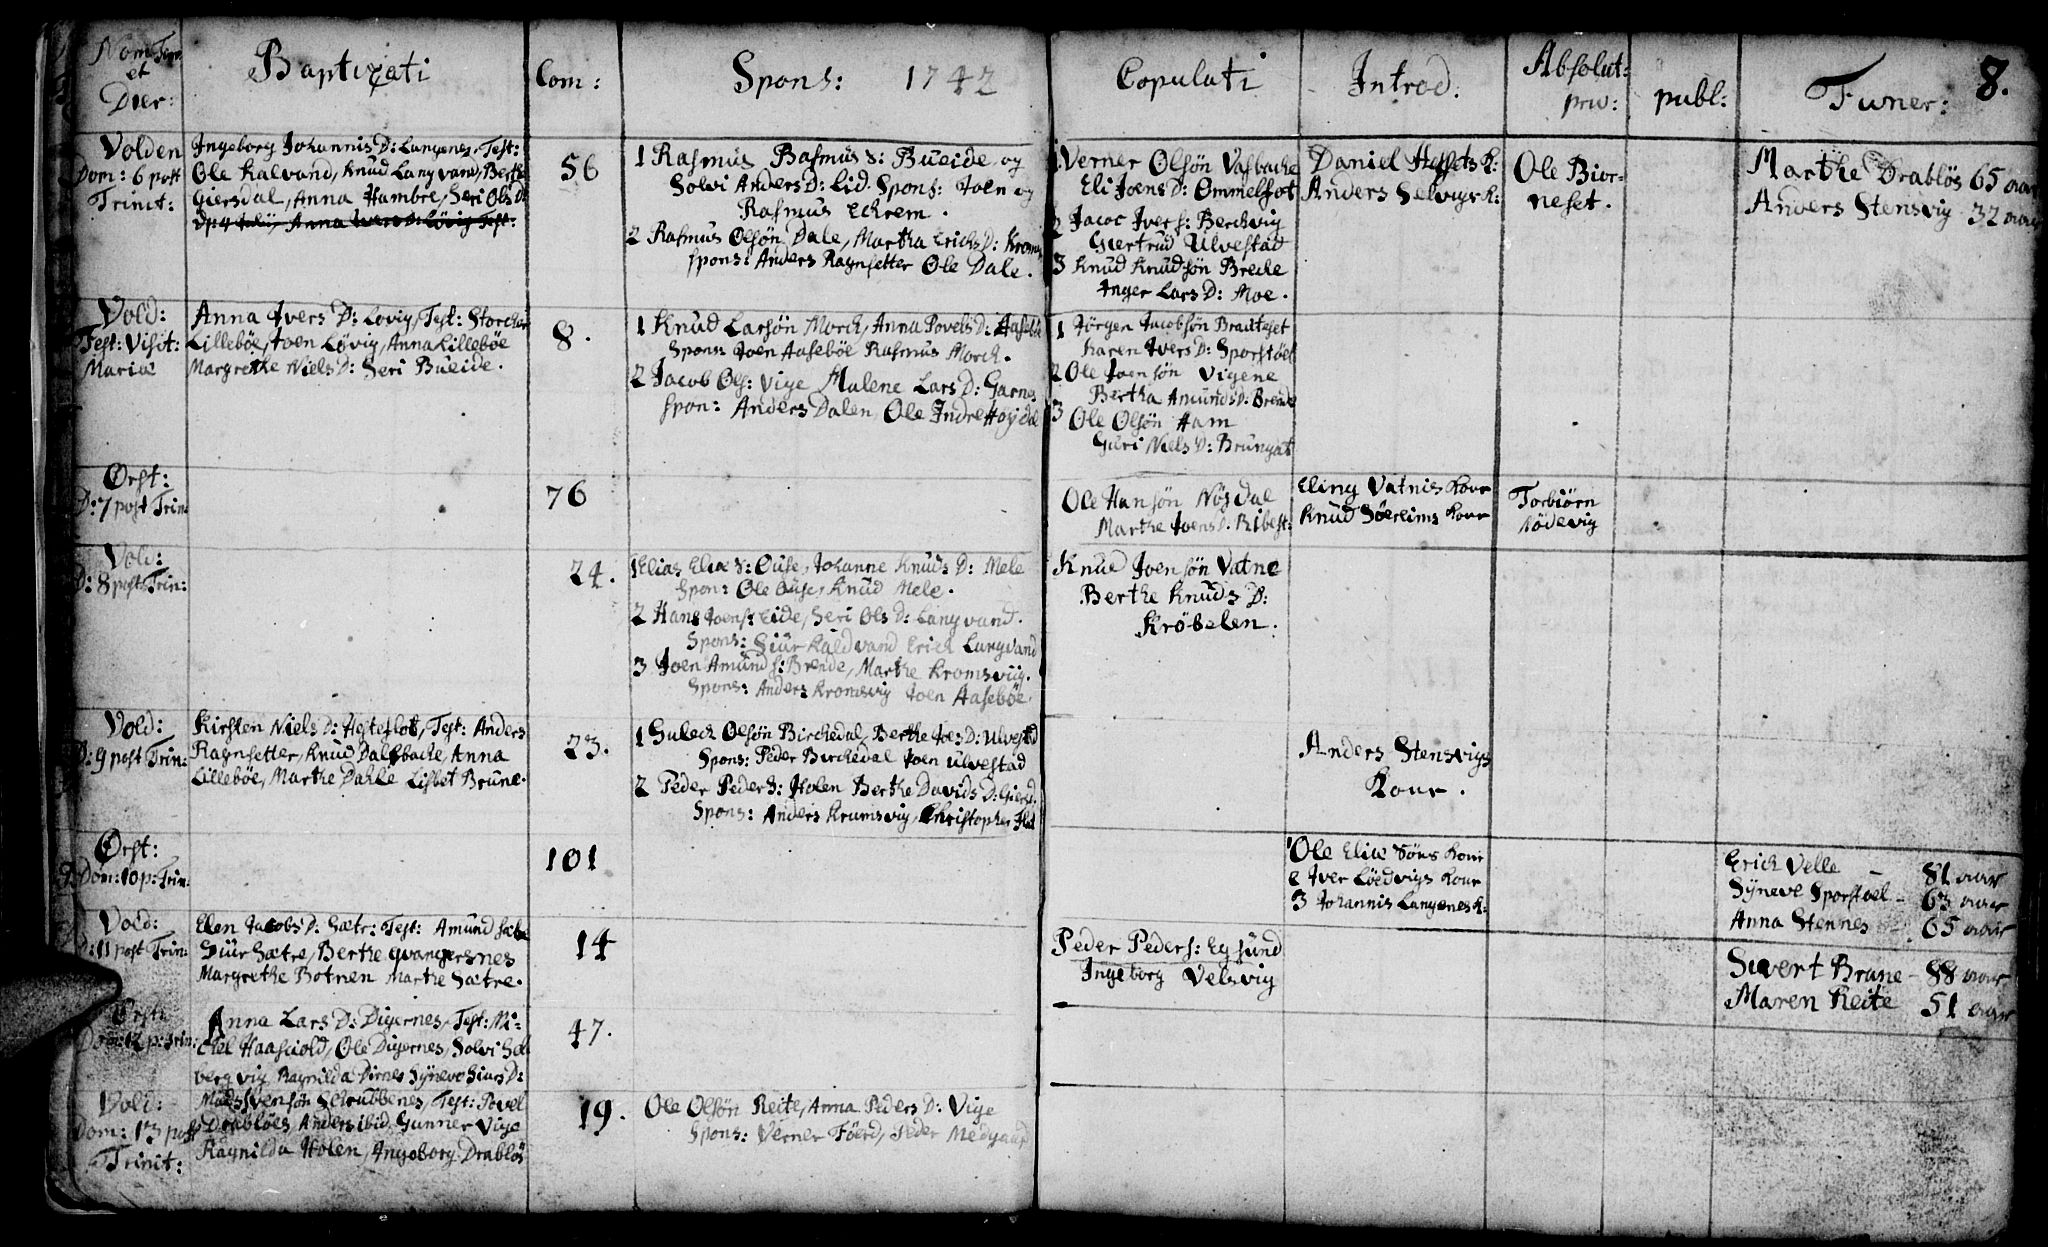 Nom: Tem:
et
Dier:
Baptizati
Com:
Spons: 1742
Copulati
Introd:
Absolut:
priv:
publ:
Funer:
8.
Volden
Dom: 6 post
Trinit:
Ingeborg Johannis D: Langenes, Test:
Ole Kalvand, Knud Langvand, Berthe
Giersdal, Anna Hambre, Seri Ols D:
56
1 Rasmus Rasmus S: Bueide og
Solvi Anders D: Lid. Spons: Joen og
Rasmus Echrem.
2 Rasmus Olsön Dale, Martha Erichs D: Kroms
spons: Anders Raynsetter Ole Dale.
1 Verner Olsön Vasbache
Eli Joens D: Ommelsot
2 Jacoc Jvers: Berchvig
Giertrud Ulvestad
3 Knud Knudsön Breche
Jnger Lars D: Moe.
Daniel Hessets K:
Anders Selvigs K:
Ole Bior-
neset.
Marthe Drabløs 65 aar
Anders Stensvig 32 aar
Vold:
Fest: Visit:
Mariæ
Anna Jvers D: Lovig, Test: Storchar
Lilleböe, Joen Lövig, Anna Lilleböe
Margrethe Niels D: Seri Bueide.
8.
1 Knud Larsön Morch, Anna Povels D: Aasebö
Spons: Joen Aasebôe Rasmus Morch.
2 Jacob Ols: Vige Malene Lars D: Garnes
spon: Anders Dalen Ole Jndre Høydal
1 Jörgen Jacobsön Brauteset
Karen Jvers D: Sporstöel
2 Ole Joensön Vigene
Bertha Amunds D: Brende
3 Ole Olsön Ham
Guri Niels D: Brungat
Ørst:
D: 7 post Trin:
76
Ole Hansön Nøsdal
Marthe Joens D. Ribest:
Eling Vatnis Kone
Knud Söereims Kone
Torbiørn
Rödevig
Vold:
D: 8 post Trin:
24.
1 Elias Eliæ S: Ouse, Johanne Knuds D: Mele
Spon: Ole Ouse, Knud Mele.
2 Hans Joens: Eide, Seri Ols D: Langvand.
Spons: Siur Kaldvand Erich Langvand
3 Joen Amunds: Brende, Marthe Kromsviig.
Spons: Anders Kromsvig Joen Aasebôe
Knud Joensön Vatne
Berthe Knuds D:
Krøbelen.
Vold:
D: 9 post Trin:
Kirsten Niels D: Hesteflot, Test: Anders
Raynsetter, Knud Dalsbache, Anna
Lillebôe, Marthe Dahle Lisbet Brune.
23.
1 Guleck Olsön Birchedal, Berthe Joes D: Ulvestad
Spons: Peder Berchedal Joen Ulvestad
2 Peder Peder S: Holen Berthe Davids D: Giersd.
Spons: Anders Krumsvig, Christopher
Anders Stensvigs
Kone.
Ørst:
Dom: 10 p: Trin:
101
1 Ole Eliæ Söns Kone
2 Jver Löedvigs Kone
3 Johannis Langenes K:
Erich Velle – 81 aar
Syneve Sporstøel – 63 aar
Anna Stennes 65 aar
Vold:
D: 11 post Trin:
Elen Jacobs D: Sætr: Test: Amund Sætre
Siur Sætre, Berthe Qvangersnes
Margrethe Botnen Marthe Sætre.
14
Peder Peders: Egsund
Jngeborg Velsvig
Sivert Brune – 88 aar
Maren Reite 51 aar
Ørst:
Dom: 12 p: Trin:
Anna Lars D: Digernes, Test: Mi-
chel Haasciold, Ole Digernes, Solvi Sol
berg vig Raynilda Dirnes Syneve Siurs D:
47.
Vold:
Dom: 13 post
Trinit:
Mads Svensön Schrubbenes, Test: Povel
Drabløes, Anders ibid, Gunner Vige
Raynilda Holen, Angeborg Drabløs
19.
Ole Olsön Reite, Anna Peders D: Vige
Spons: Verner Föerd, Peder Medgaard